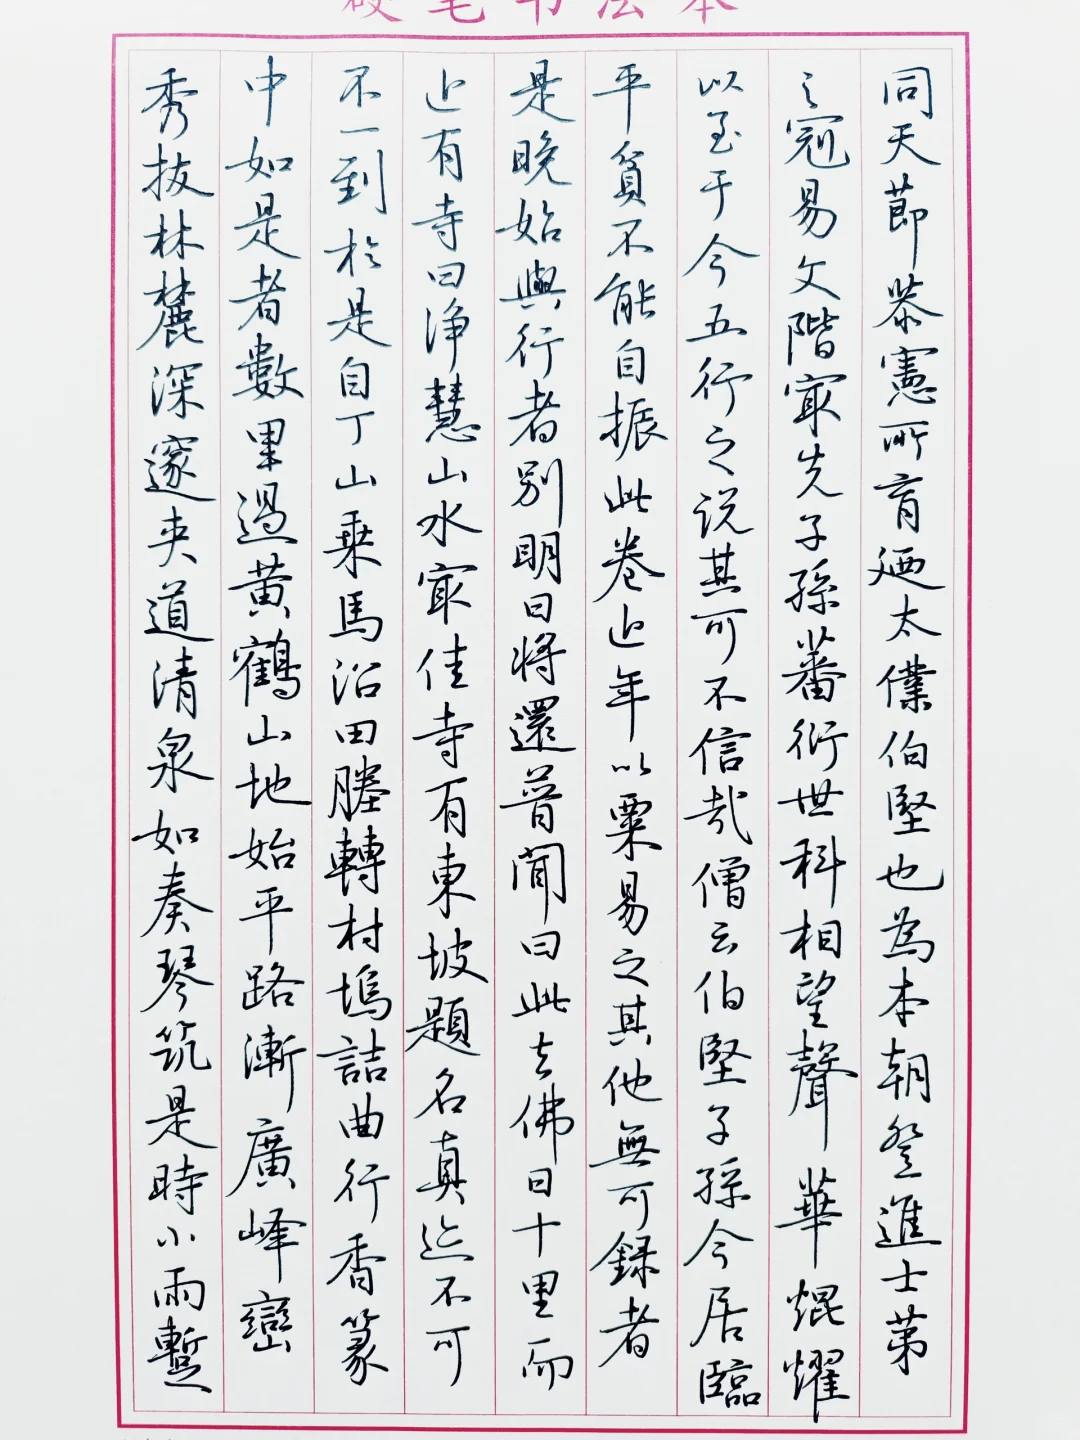 硬笔书法本
同天節恭憲所育廼太僕伯堅也為本朝登進士第
之冠易文階冣先子孫蕃衍世科相望聲華焜耀
以至于今五行之説其可不信哉僧云伯堅子孫今居臨
平貧不能自振此卷近年以粟易之其他無可録者
是晚始與行者別明日将還普聞曰此去佛日十里而
近有寺曰淨慧山水冣佳寺有東坡題名真迹不可
不一到於是自丁山乗馬沿田塍轉村塢詰曲行香篆
中如是者數里過黄鶴山地始平路漸廣峰巒
秀拔林麓深邃夹道清泉如奏琴筑是時小雨蹔